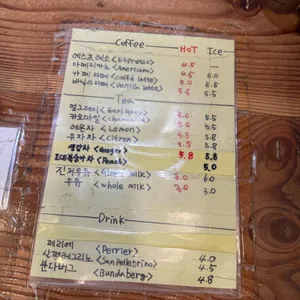 Coffee HOT Ice
에스프레소 <Espresso> 4.5 —
아메리카노 <American> 4.5 5.0
카페라떼 <caffé latte> 5.0 5.5
바닐라라떼 <Vanilla latte> 5.5
Tea
얼그레이 5.0 5.5
캐모마일 5.0 5.5
레몬차 <Lemon> 5.5 5.8
유자차 <Citron> 5.5 5.8
생강차 <Ginger> 5.8
ICE복숭아차 <Peach> 5.8 5.0
milk> 6.0
우유 <whole milk> 3.0 3.5
Drink
페리에 <Perrier> 4.0
산펠레그리노 <San Pellegrino> 4.5
분다버그 <Bundaberg> 4.8